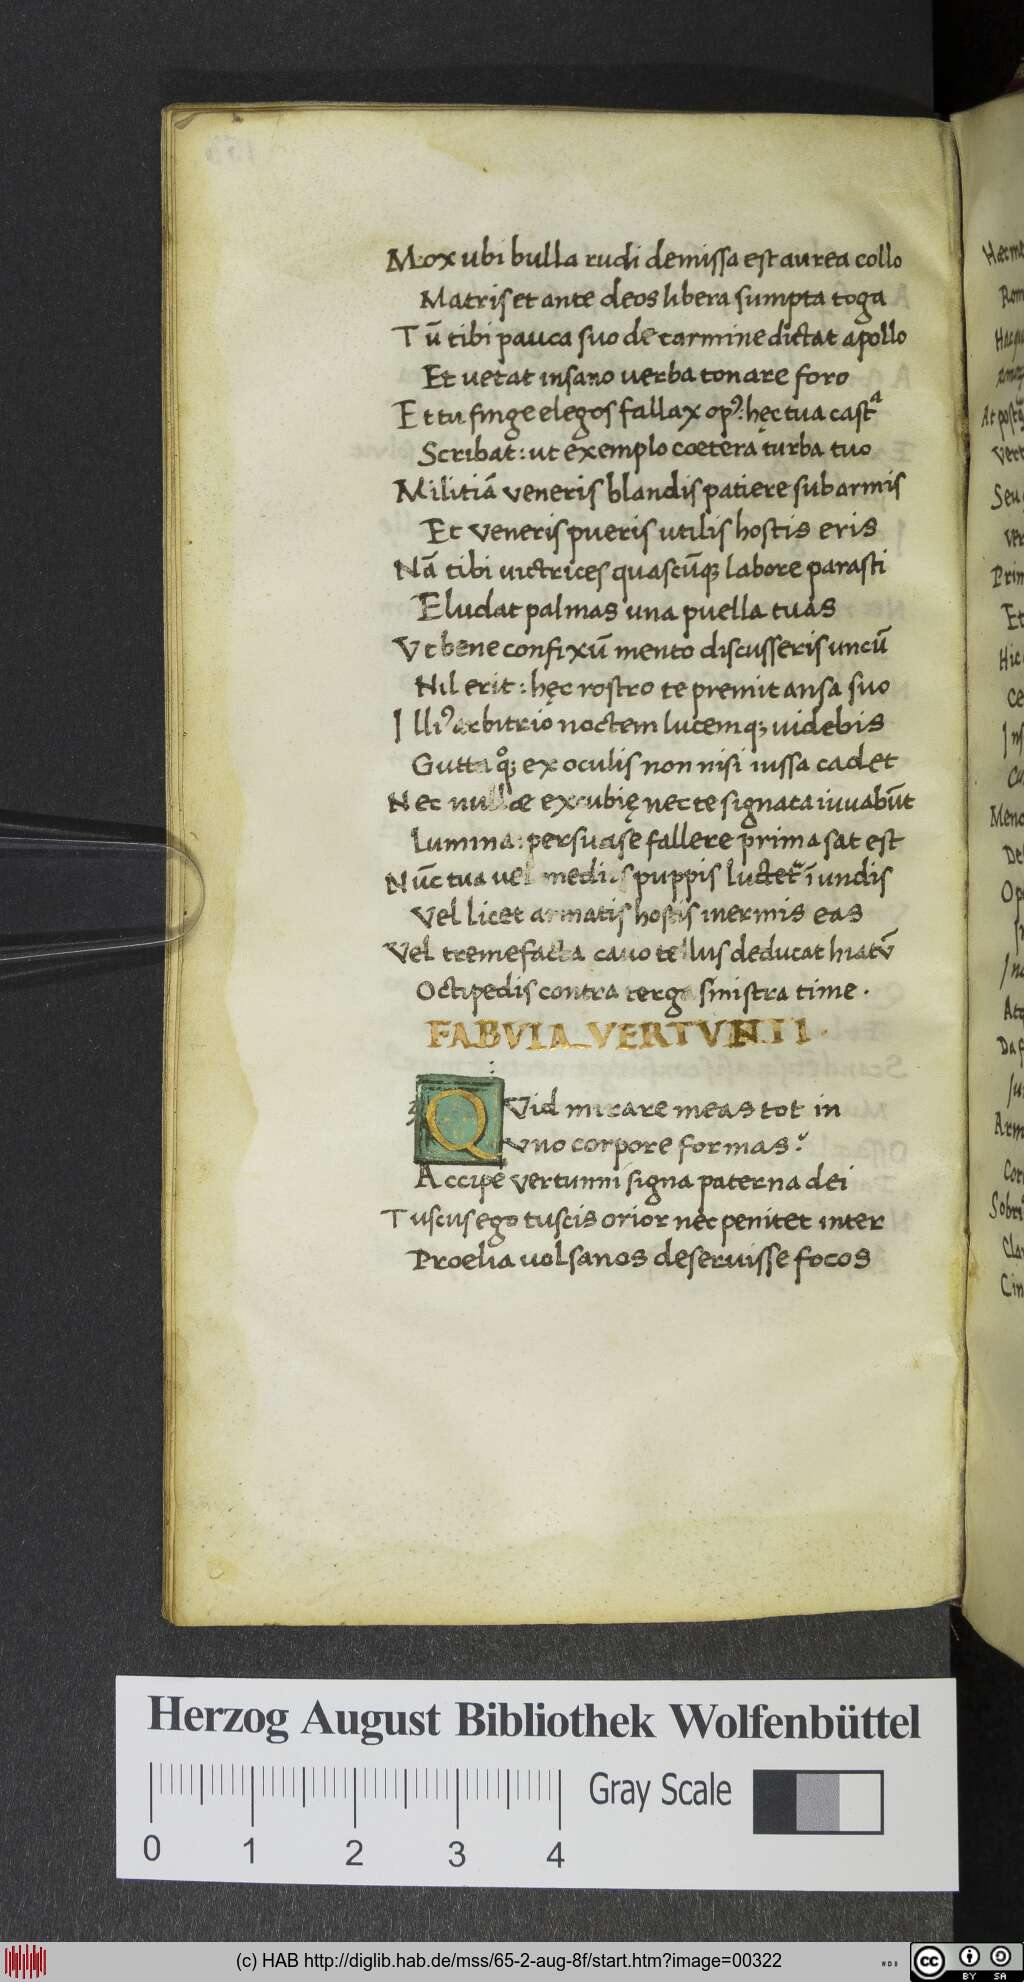 Mox ubi bulla rudi demissa est aurea collo
Matris et ante deos libera sumpta toga
Tū tibi pauca suo de carmine dictat apollo
Et vetat insano verba tonare foro
Et tu finge elegos fallax opꝰ: hęc tua castra
Scribat: ut exemplo coetera turba tuo
Militiā veneris blandis patiere sub armis
Et veneris pueris utilis hostis eris
Nā tibi victrices quascūq; labore parasti
Eludat palmas una puella tuas
Vt bene confixū mento discusseris uncū
Nil erit: hęc rostro te premit ansa suo
Illiꝰ arbitrio noctem lucemq; videbis
Gutta qͦꝫ ex oculis non nisi iussa cadet
Nec nullae excubię nec te signata iuvabūt
Lumina: persuase fallere prima sat est
Nūc tua vel mediis puppis luctet̄ ī undis
Vel licet armatis hostis inermis eas
Vel tremefacta cavo tellus deducat hiatū
Octipedis contra terga sinistra time.
FABVLA VERTVNII.
QVid mirare meas tot in
vno corpore formas?
Accipe vertunni signa paterna dei
Tuscus ego tuscis orior nec penitet inter
Proelia volsanos deseruisse focos
Herzog August Bibliothek Wolfenbüttel
Gray Scale
0 1 2 3 4
(c) HAB http://diglib.hab.de/mss/65-2-aug-8f/start.htm?image=00322
cc BY SA